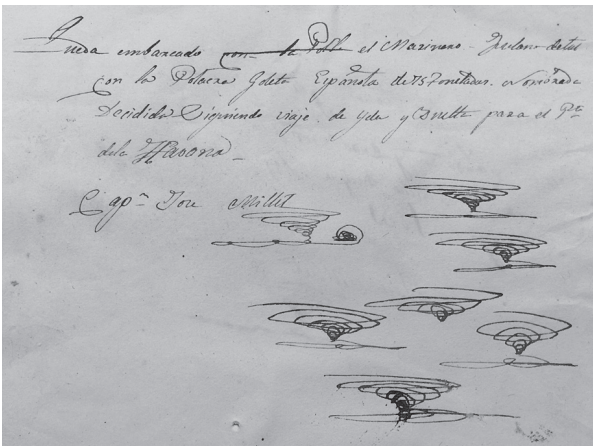 Queda embarcado con la Polla el Marinero Fulano de tal
con la Polacra Goleta Española de 75 Toneladas. Nombrada
Decidida Siguiendo viaje de Yda y Buelta para el Pto
dela Havana
Capn Jose Millet